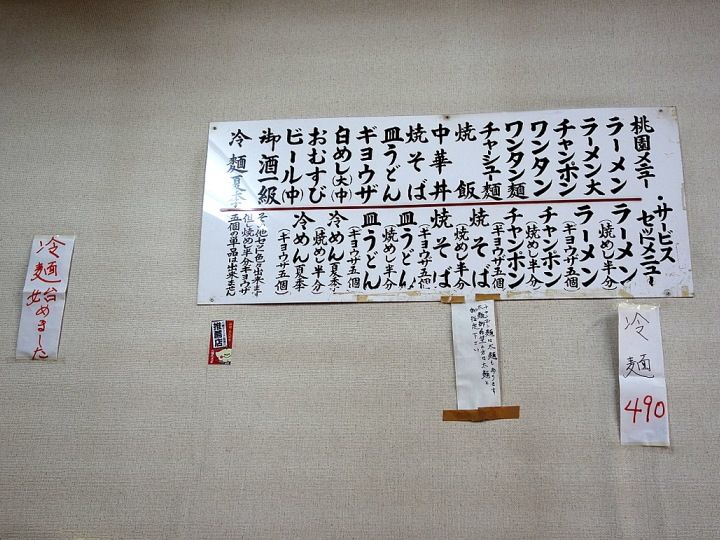 桃園メニュー
ラーメン
ラーメン大
チャンポン
ワンタン
ワンタン麺
チャシュー麺
焼飯
中華丼
焼そば
皿うどん
ギョウザ
白めし(大)(中)
おむすび
ビール(中)
御酒一級
冷麺夏季
・サービス
セットメニュー
ラーメン
(焼めし半分)
ラーメン
(ギョウザ五個)
チャンポン
(焼めし半分)
チャンポン
(ギョウザ五個)
焼そば
(焼めし半分)
焼そば
(ギョウザ五個)
皿うどん
(焼めし半分)
皿うどん
(ギョウザ五個)
冷めん夏季
(焼めし半分)
冷めん夏季
(ギョウザ五個)
その他セットに色々出来ます
但し焼めし半分ギョウザ
五個の単品は出来ません
冷麺始めました
推薦店
冷麺
490